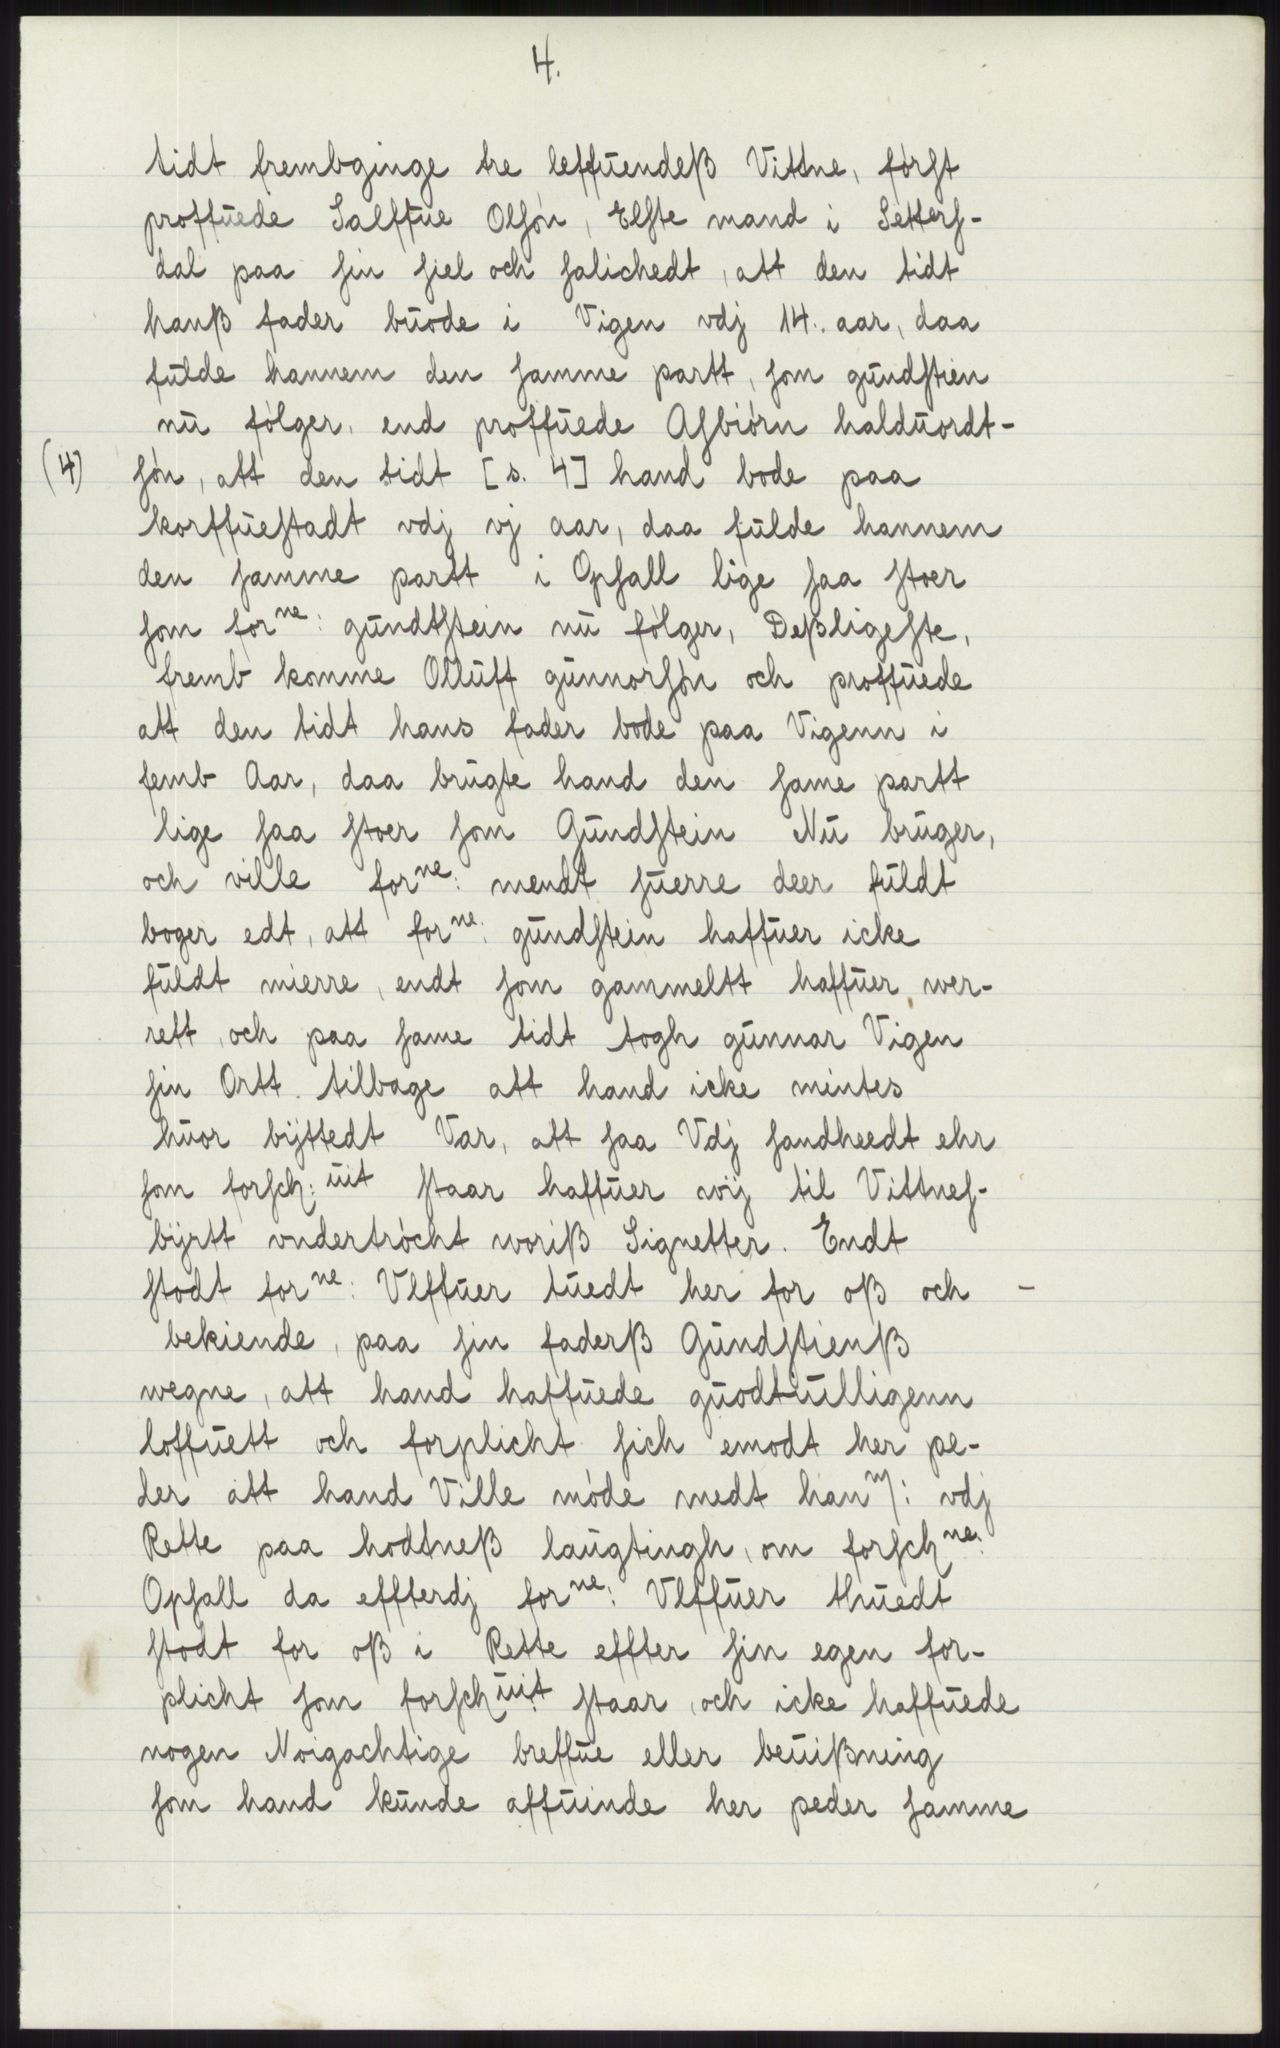 4.
tidt frembginge tre leffuendeß Vittne, først
proffuede Salffue Olsøn, Elste mand i Setters-
dal paa sin siel och salichedt, att den tidt
hanß fader buode i Vigen vdj 14. aar, daa
fulde hannem den samme partt, som gundstien
nu følger, end proffuede Asbiørn halduordt-
(4) søn, att den tidt [s. 4] hand bode paa
korffuestadt vdj vj aar, daa fulde hannem
den samme partt i Opsall lige saa stoer
som for ne: gundtstein nu følger, Deßligeste,
fremb komme Olluff gunnorsøn och proffuede
att den tidt hans fader bode paa Vigenn i
femb Aar, daa brugte hand den same partt
lige saa stoer som Gundstein Nu bruger,
och ville for ne: mendt suerre deer fuldt
boger edt, att for ne: gundstein haffuer icke
fuldt mierre, endt som gammeltt haffuer wer-
rett, och paa same tidt togh gunnar Vigen
sin Ortt tilbage att hand icke mintes
huor bÿttedt Var, att saa Vdj sandheedt ehr
som forsch: uit staar haffuer wij til Vittnes-
bÿrtt vndertrøcht woriß Signetter. Endt
stodt for ne: Vlffuer tuedt her for oß och –
bekiende, paa sin faderß Gundstienß
wegne, att hand haffuede guodtuilligenn
loffuett och forplicht sich emodt her pe-
der att hand Ville møde medt han m: vdj
Rette paa hodtneß laugtingh, om forsch ne:
Opsall da effterdj for ne: Vlffuer thuedt
stodt for oß i Rette effter sin egen for-
plicht som forsch uit staar, och icke haffuede
nogen Noigachtige breffue eller beuißning
som hand kunde affuinde her peder samme